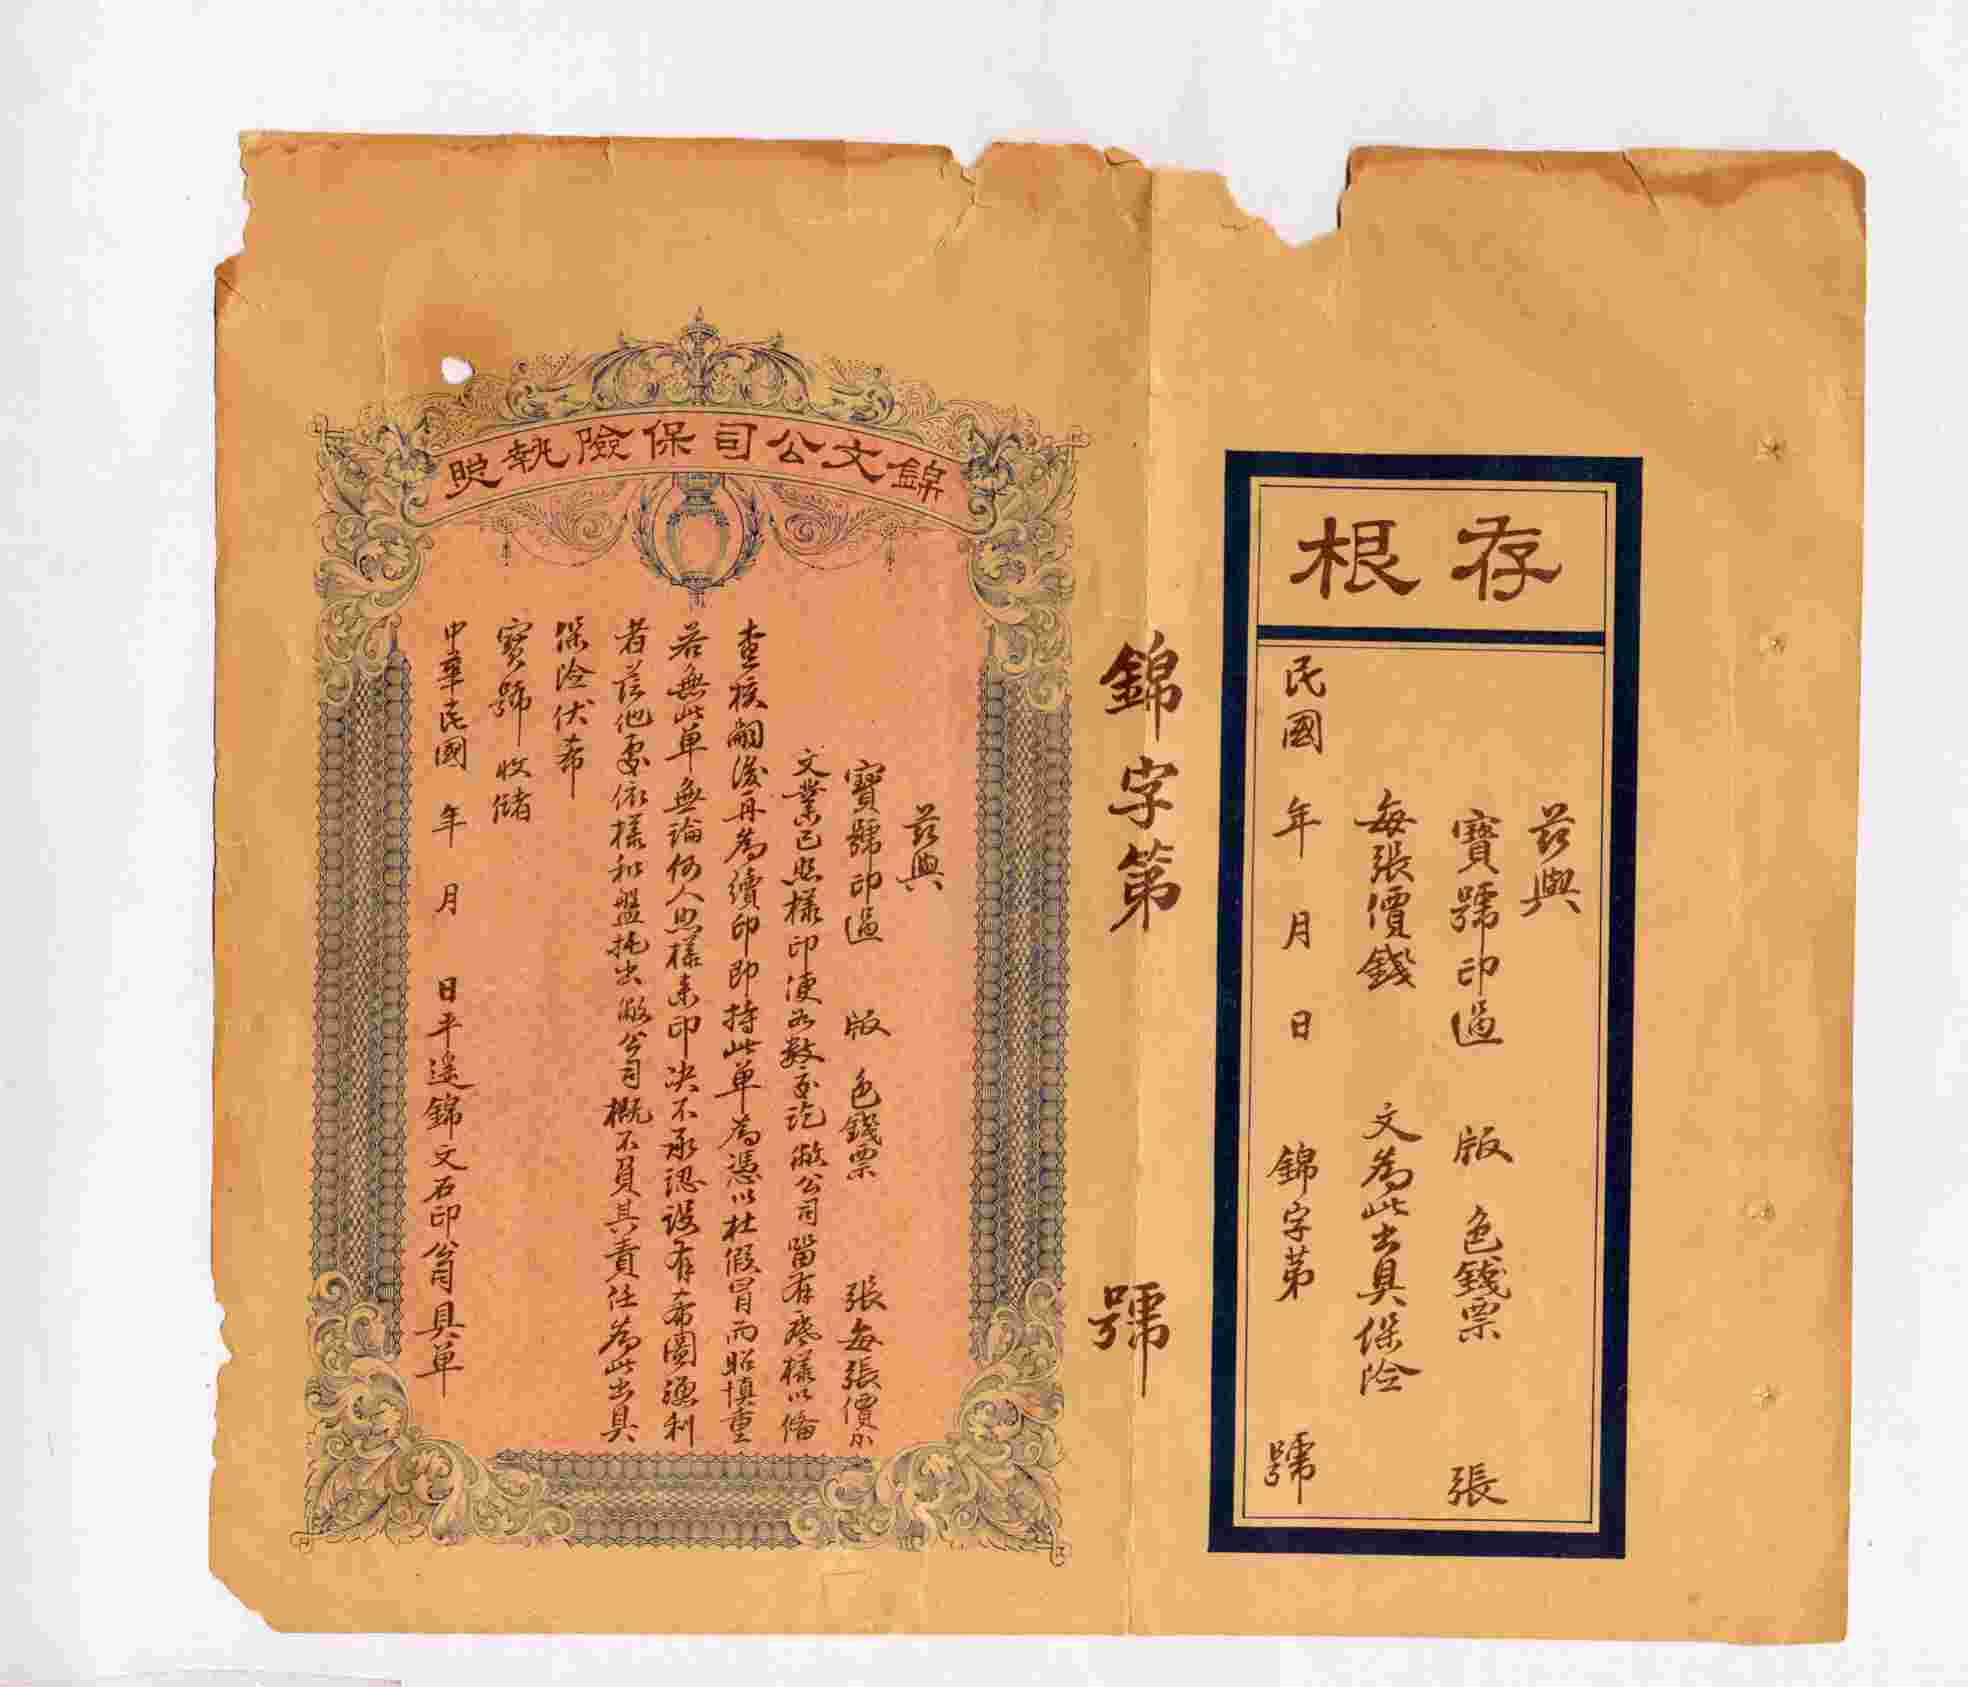 存根
茲與
寶號印過 版 色錢票 張
每張價錢 文為此出具保险
民國 年 月 日 錦字第 號
錦字第 號
錦文公司保險執照
茲與
寶號印過 版 色錢票 張每張價錢
文業已照樣印便如數交訖敝公司留有底樣以俻
查核嗣後再為續印即持此單為憑以杜假冒而昭慎重
若無此單無論何人照樣來印决不承認設有希圖漁利
者茲他處依樣和盤托出敝公司概不負其責任為此出具
保险伏希
寶號收储
中華民國 年 月 日平遙錦文石印公司具單